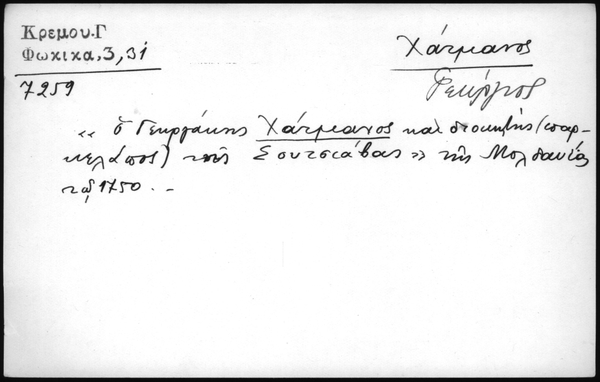 Κρεμου.Γ
Φωκικα,3,31
7259
Χάτμανος
Γεώργιος
« ὁ Γεωργάκης Χάτμανος καὶ διοικητὴς (σπαρ-
κελάπος) τῆς Σουτσιάβας » τῆς Μολδαυίας
τῷ 1750.-